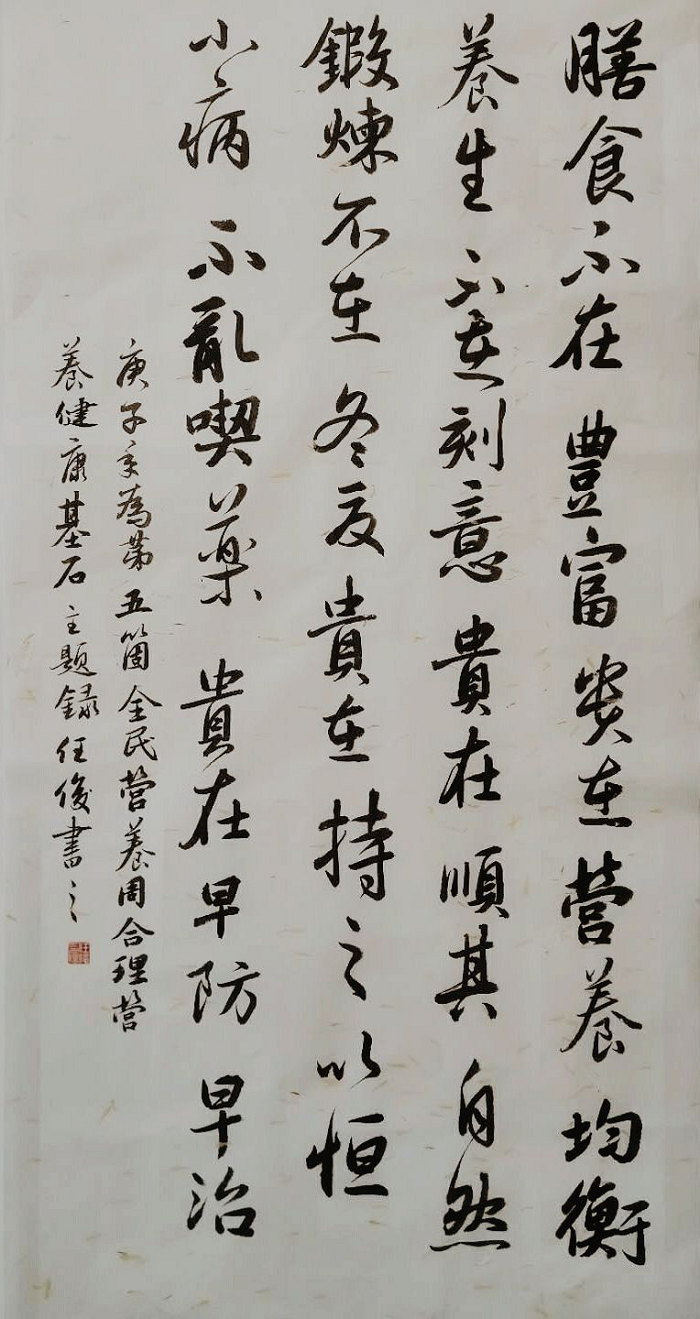 膳食不在豐富貴在營養均衡
養生不在刻意貴在順其自然
鍛煉不在冬夏貴在持之以恒
小病不亂喫藥貴在早防早治
庚子年為第五箇全民營養周合理營
養健康基石主題錄任俊書之